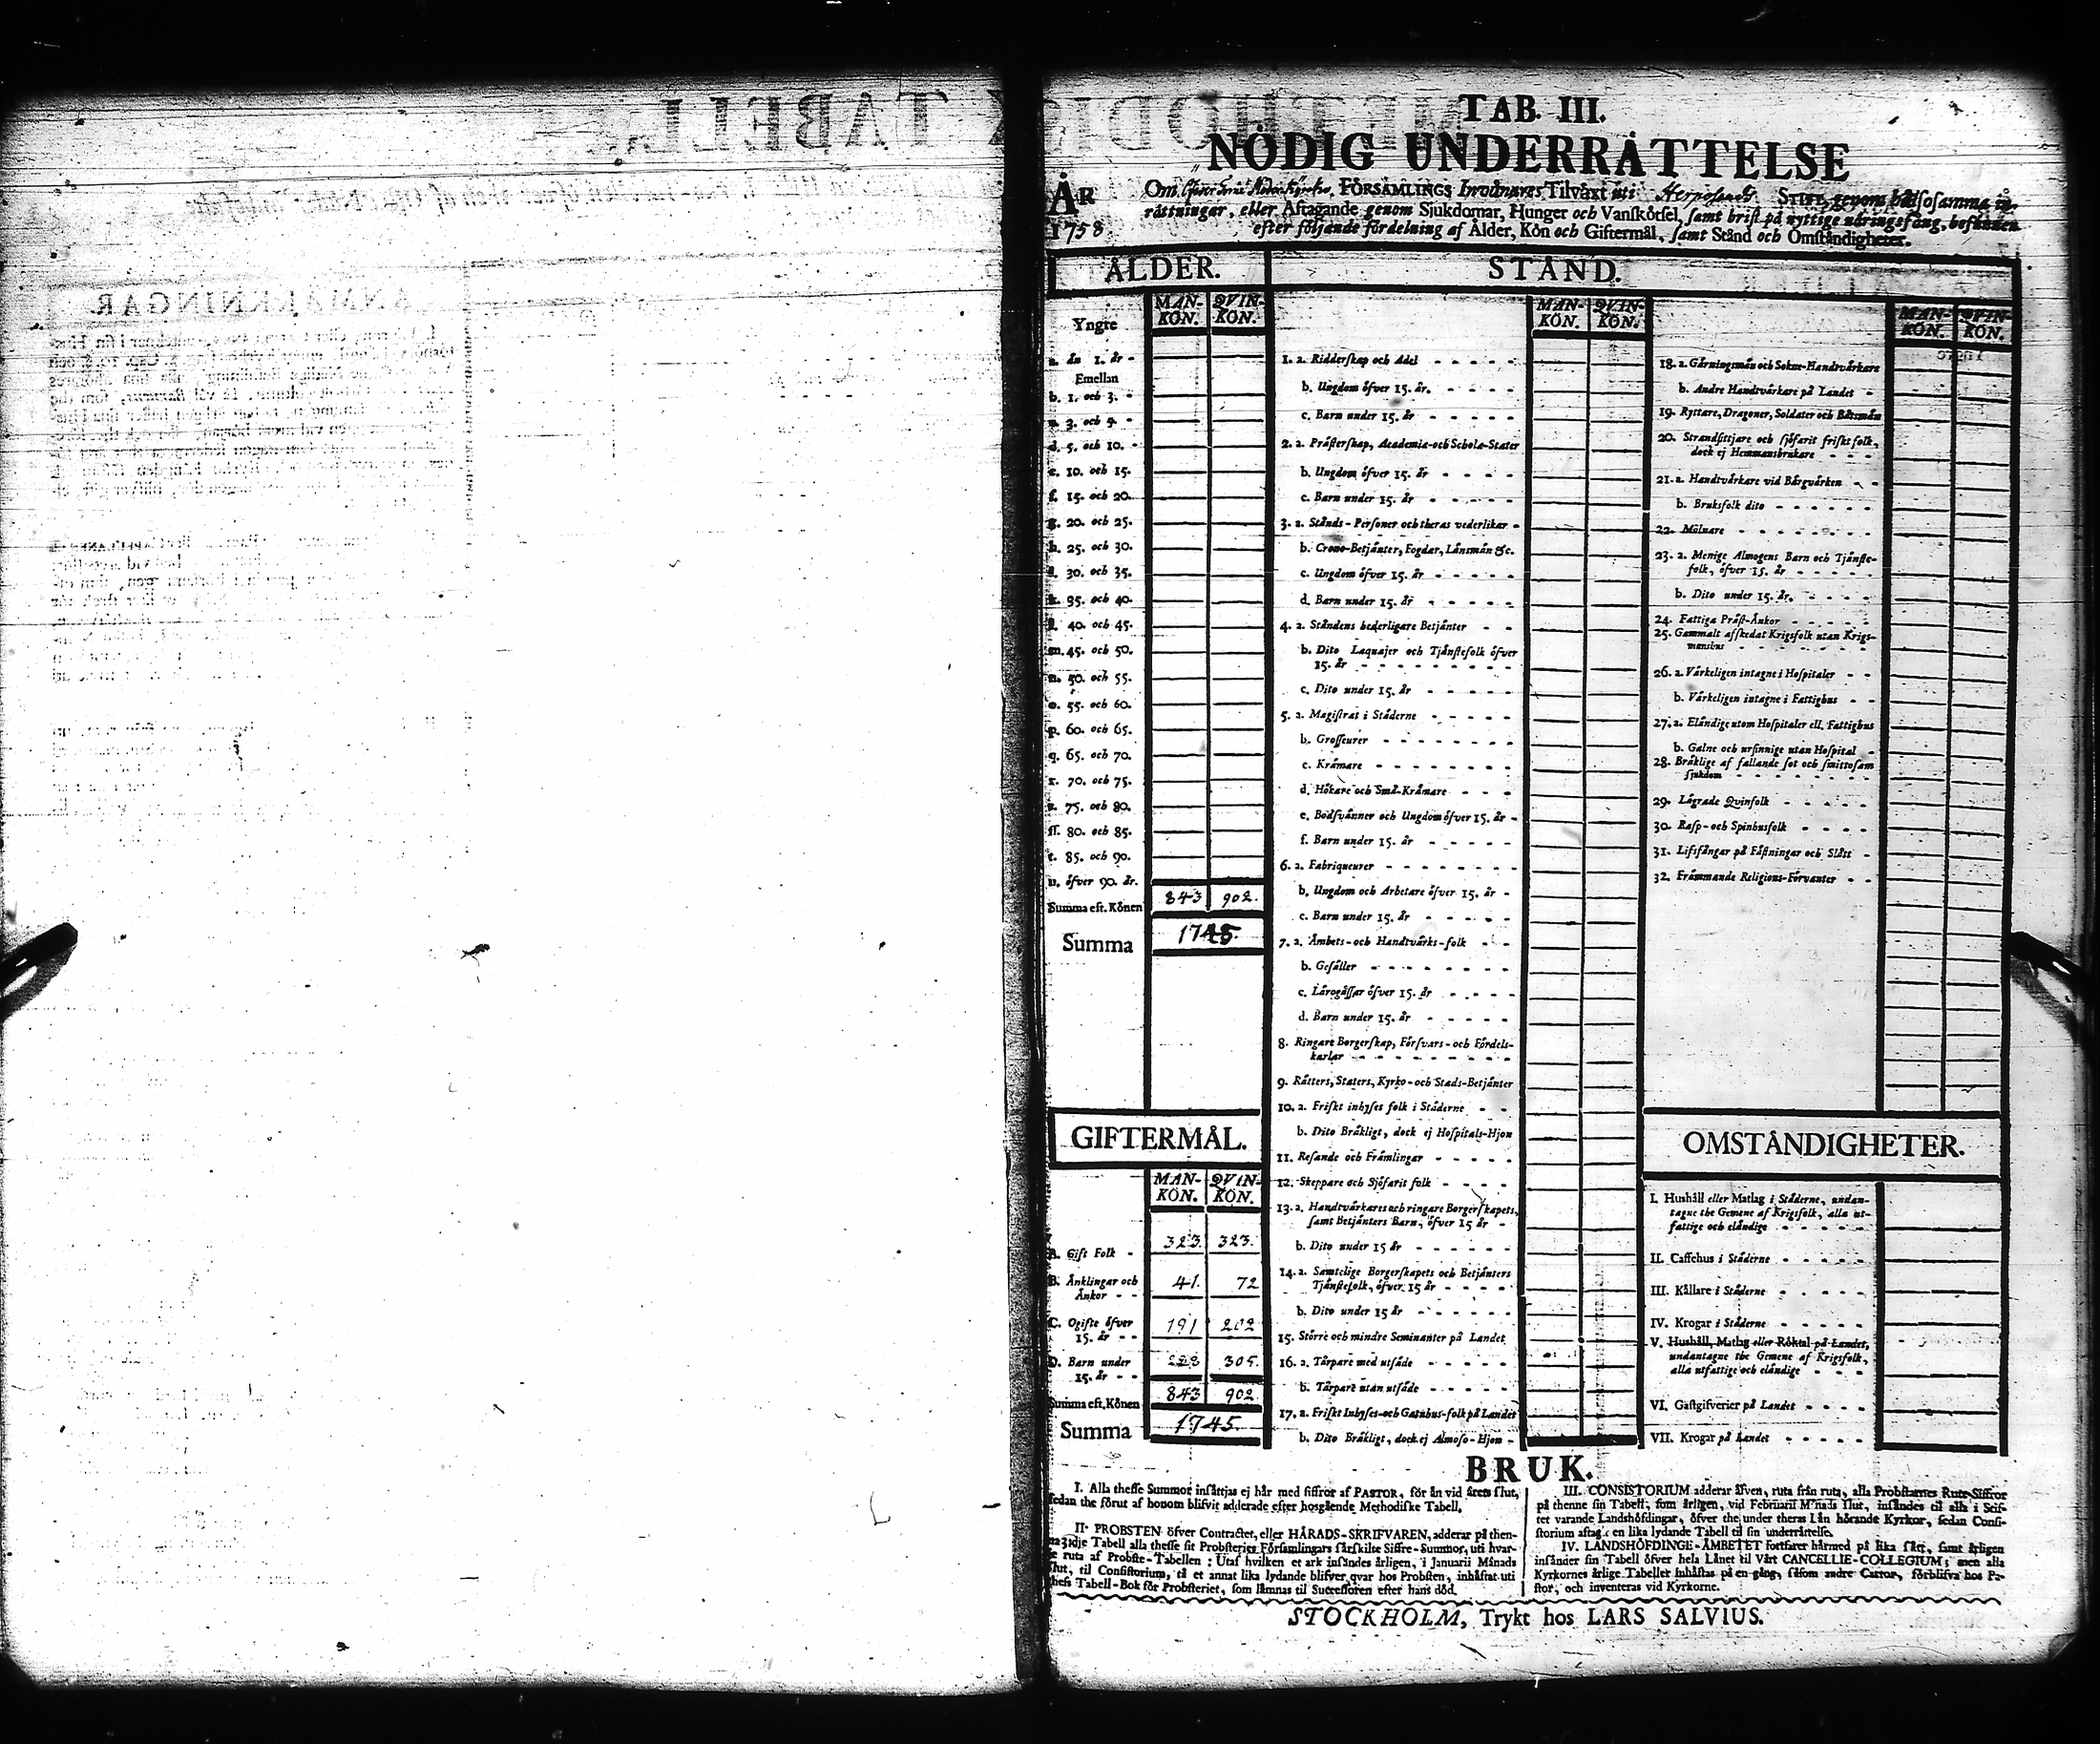 TAB. III.
NÖDIG UNDERRÄTTELSE
ÅR
1758
Om FÖRSAMLINGS Inwånares Tilväxt uti Stift, genom hålsosamma in-
råttningar, eller Aftagande genom Sjukdomar, Hunger och Vanſkötſel, ſamt briſt på nyttige näringsfång, befunnen
efter följande fördelning af Ålder, Kön och Giftermål, ſamt Stånd och Omſtåndigheter.
ÅLDER.
MAN-KÖN. QVIN-KÖN.
Yngre
a. än 1. år -
Emellan
b. 1. och 3. -
c. 3. och 5. -
d. 5. och 10. -
e. 10. och 15.
f. 15. och 20.
g. 20. och 25.
h. 25. och 30.
i. 30. och 35.
k. 35. och 40.
l. 40. och 45.
m. 45. och 50.
n. 50. och 55.
o. 55. och 60.
p. 60. och 65.
q. 65. och 70.
r. 70. och 75.
s. 75. och 80.
ſſ. 80. och 85.
t. 85. och 90.
u. öfver 90. år.
Summa eft. Könen 843 902.
Summa 1745.
GIFTERMÅL.
MAN-KÖN. QVIN-KÖN.
A. Gift Folk - 323. 323.
B. Änklingar och
Änkor - - 41. 72
C. Ogifte öfver
15. år - - 191 202
D. Barn under
15. år - - 305.
Summa eft. Könen 843 902
Summa 1745.
STÅND.
MAN-KÖN. QVIN-KÖN.
1. a. Ridderſkap och Adel - - - - -
b. Ungdom öfver 15. år. - - - - -
c. Barn under 15. år - - - - -
2. a. Präſterſkap, Academia- och Schola-Stater
b. Ungdom öfver 15. år - - - - -
c. Barn under 15. år - - - - -
3. a. Stånds-Perſoner och theras vederlikar -
b. Crono-Betjänter, Fogdar, Länsmän &c.
c. Ungdom öfver 15. år - - - - -
d. Barn under 15. år - - - - -
4. a. Ståndens hederligare Betjänter - -
b. Dito Laquajer och Tjänſtefolk öfver
15. år - - - - - - - -
c. Dito under 15. år - - - - -
5. a. Magiſtrat i Städerne - - - - -
b. Groſſeurer - - - - - - -
c. Krämare - - - - - - - -
d. Hökare och Små-Krämare - - -
e. Bodſvänner och Ungdom öfver 15. år -
f. Barn under 15. år - - - - -
6. a. Fabriqueurer - - - - - - -
b. Ungdom och Arbetare öfver 15. år -
c. Barn under 15. år - - - - -
7. a. Ämbets- och Handtvärks-folk - -
b. Geſäller - - - - - - - -
c. Lärogåſſar öfver 15. år - - - -
d. Barn under 15. år - - - - -
8. Ringare Borgerſkap, Förſvars- och Fördels-
karlar - - - - - - - -
9. Rätters, Staters, Kyrko- och Stads-Betjänter
10. a. Friſkt inhyſes folk i Städerne - -
b. Dito Bräkligt, dock ej Hoſpitals-Hjon
11. Reſande och Främlingar - - - - -
12. Skeppare och Sjöfarit folk - - - -
13. a. Handtvärkares och ringare Borgerſkapets,
ſamt Betjänters Barn, öfver 15 år -
b. Dito under 15 år - - - - - -
14. a. Samtelige Borgerſkapets och Betjänters
Tjänſtefolk, öfver 15 år - - - -
b. Dito under 15 år - - - - - -
15. Större och mindre Seminanter på Landet
16. a. Tårpare med utſäde - - - - -
b. Tårpare utan utſäde - - - - -
17. a. Friſkt Inhyſes- och Gatuhus-folk på Landet
b. Dito Bräkligt, dock ej Almoſo-Hjon -
MAN-KÖN. QVIN-KÖN.
18. a. Gärningsmän och Sokne-Handtvärkare
b. Andre Handtvärkare på Landet -
19. Ryttare, Dragoner, Soldater och Båtsmän
20. Strandſittjare och ſjöfarit friſkt folk,
dock ej Hemmansbrukare - - -
21. a. Handtvärkare vid Bärgvärken - -
b. Bruksfolk dito - - - - - -
22. Mölnare - - - - - - - -
23. a. Menige Almogens Barn och Tjänſte-
folk, öfver 15. år - - - - -
b. Dito under 15. år. - - - - -
24. Fattiga Präſt-Änkor - - - - - -
25. Gammalt afſkedat Krigsfolk utan Krigs-
manshus - - - - - - - -
26. a. Värkeligen intagne i Hoſpitaler - -
b. Värkeligen intagne i Fattighus - -
27. a. Eländige utom Hoſpitaler ell. Fattighus
b. Galne och urſinnige utan Hoſpital -
28. Bräklige af fallande ſot och ſmittoſam
ſjukdom - - - - - - - -
29. Lägrade Qvinfolk - - - - -
30. Raſp- och Spinhusfolk - - - -
31. Lifsfångar på Fäſtningar och Slått -
32. Främmande Religions-Förvanter - -
OMSTÄNDIGHETER.
I. Hushåll eller Matlag i Städerne, undan-
tagne the Gemene af Krigsfolk, alla ut-
fattige och eländige - - - - -
II. Caffehus i Städerne - - - - -
III. Källare i Städerne - - - - -
IV. Krogar i Städerne - - - - -
V. Hushåll, Matlag eller Röktal på Landet,
undantagne the Gemene af Krigsfolk,
alla utfattige och eländige - - - -
VI. Gäſtgifverier på Landet - - - -
VII. Krogar på Landet - - - - -
BRUK.
I. Alla theſſe Summor inſättjas ej här med ſiffror af PASTOR, för än vid årets ſlut,
ſedan the förut af honom blifvit adderade efter hosgående Methodiſke Tabell.
II. PROBSTEN öfver Contractet, eller HÄRADS-SKRIFVAREN, adderar på then-
na 3:dje Tabell alla theſſe ſit Probſteries Förſamlingars ſärſkilte Siffre-Summor, uti hvar-
je ruta af Probſte-Tabellen: Utaf hvilken et ark inſändes årligen, i Januarii Månads
ſlut, til Conſiſtorium, tå et annat lika lydande blifver qvar hos Probſten, inhäftat uti
theſs Tabell-Bok för Probſteriet, ſom lämnas til Succeſſoren efter hans död.
III. CONSISTORIUM adderar äfven, ruta från ruta, alla Probſtarnes Rute-Siffror
på thenne ſin Tabell, ſom årligen, vid Februarii M'nads ſlut, inſändes til alla i Stif-
tet varande Landshöfdingar, öfver the under theras Län hörande Kyrkor, ſedan Conſi-
ſtorium aftagit en lika lydande Tabell til ſin underrättelſe.
IV. LANDSHÖFDINGE-ÄMBETET fortfarer härmed på lika ſätt, ſamt årligen
inſänder ſin Tabell öfver hela Länet til Vårt CANCELLIE-COLLEGIUM; men alla
Kyrkornes årlige Tabeller inhäftas på en gång, ſåſom andre Cartor, förblifva hos Pa-
ſtor, och inventeras vid Kyrkorne.
STOCKHOLM, Trykt hos LARS SALVIUS.